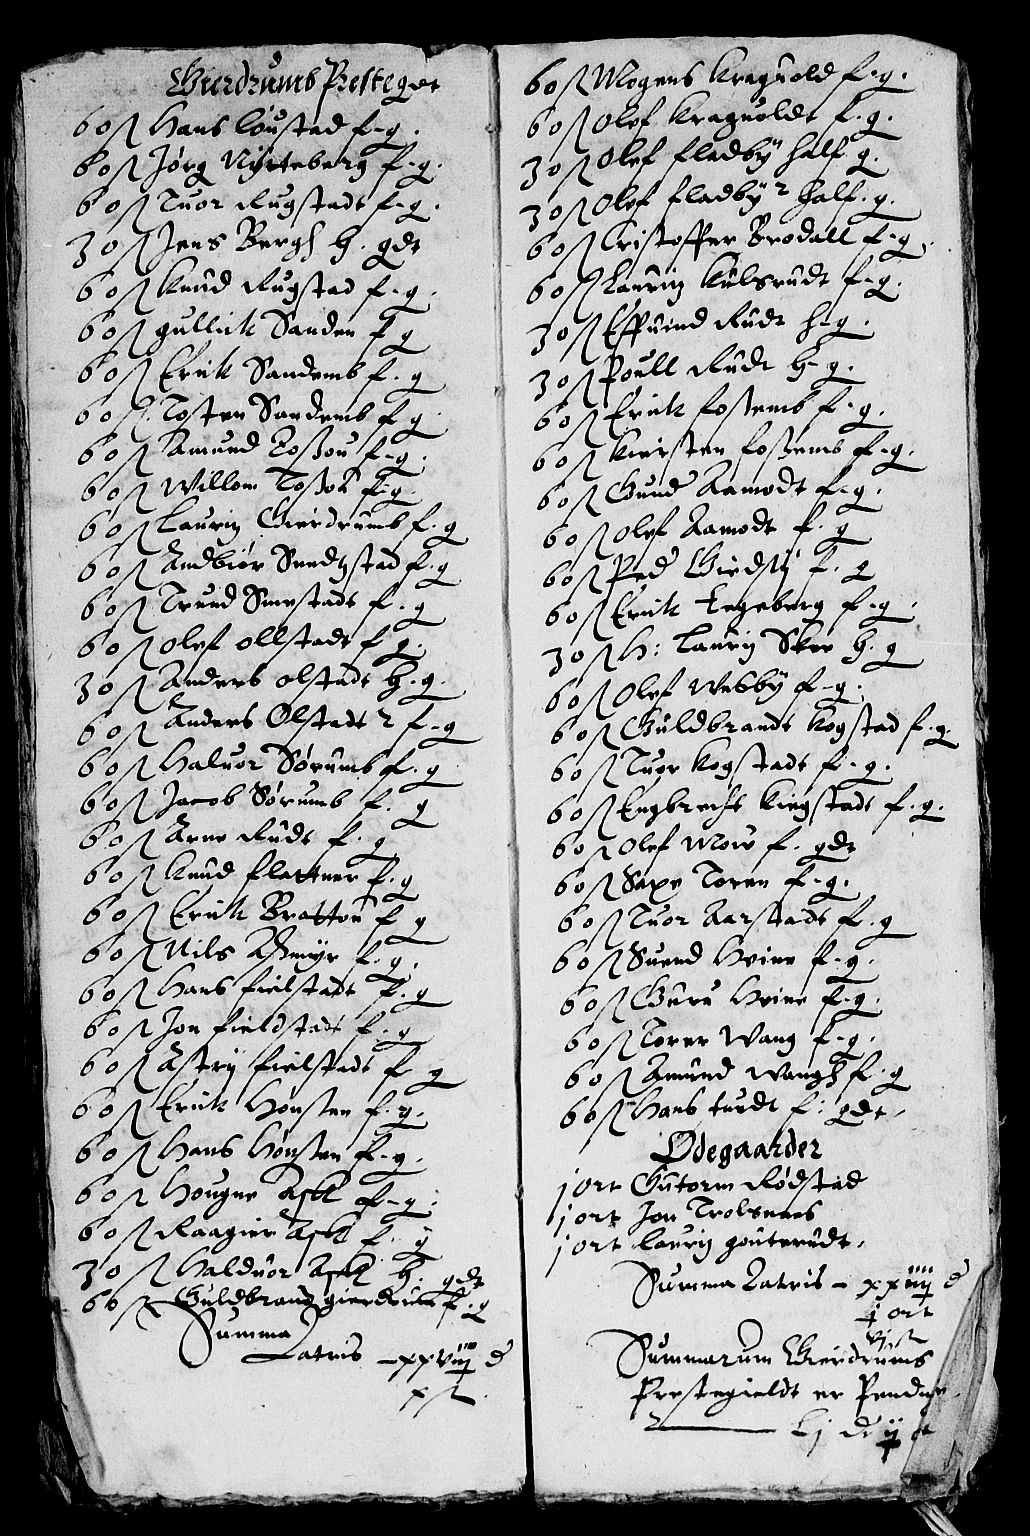 Gierdrumbs Prestegdt
60 ß Hans Løustad f-g.
60 ß Jørg Nytteberg f-g.
60 ß Tuor Rugstadt f-g.
30 ß Jens Bergh h. gdt
60 ß Knud Rugstad f-g.
60 ß gullich Sanden f g
60 ß Erick Sandemb f. g
60 ß Tosten Sandemb f-g
60 ß Aamund f-g.
60 ß Willom f-g.
60 ß Lauritz Gierdrumbs f. g
60 ß f. g
60 ß Trund Smestadt f. g
60 ß Olef Ollstadt f g.
30 ß Anders Olstadt h. g.
60 ß Anders Olstadt 2 f-g
60 ß Haluor Sørumb f. g
60 ß Jacob Sørumb f. g
60 ß Arne Rudt f. g
60 ß Knud Flattner f. g
60 ß Erick Brotton f g
60 ß Nils f. g.
60 ß Hans fielstadt f. g
60 ß Jon fieldstadt f. g
60 ß Astrij fielstadt f g
60 ß Erick Hønsten f. g.
60 ß Hans Hønsten f-g.
60 ß Hougne Ask f-g.
60 ß Raagier Ask f. g
30 ß Halduor Ask h. gdt
60 ß Guldbrand gierdrum f. g
Summa
Latris - xxviij d
x ß
60 ß Mogens Kraguold f-g.
60 ß Olef Kraguoldt f. g.
30 ß Olef fladby half g.
30 ß Olef fladby 2 half. g.
60 ß Cristoffer Brodall f-g.
60 ß Lauritz Kulsrudt f-g.
30 ß Effuind Rudt h-g.
30 ß Poull Rudt h-g.
60 ß Erick fossemb f-g.
60 ß Kiersten fossemb f-g.
60 ß Gund Aamodt f-g.
60 ß Olef Aamodt f. g
60 ß Ped f. g
60 ß Erick Legeberg f-g.
30 ß H: Lauritz Skee h. g
60 ß Olef Webby f-g.
60 ß Guldbrandt Kogstad f. g.
60 ß Tuor Kogstadt f-g.
60 ß Engbrecht Kingstadt f. g.
60 ß Olef Moe f. gdt
60 ß Saxe Toren f-g.
60 ß Tuor Aarstadt f. g
60 ß Suend Hvine f-g.
60 ß Guru Hvine f-g.
60 ß Torer Wang f-g.
60 ß Amund Wangh f. g
60 ß Hans tuedt f: gdt.
Ødegaarder
j ort Gutorm Rødstad
j ort Jon Trolsnees
j ort Lauritz gouterudt.
Summa Latris - xxiij d
j ort
vj ß
Summarum Gierdrums
Prestegieldt er Pendge
Lj d ij ß